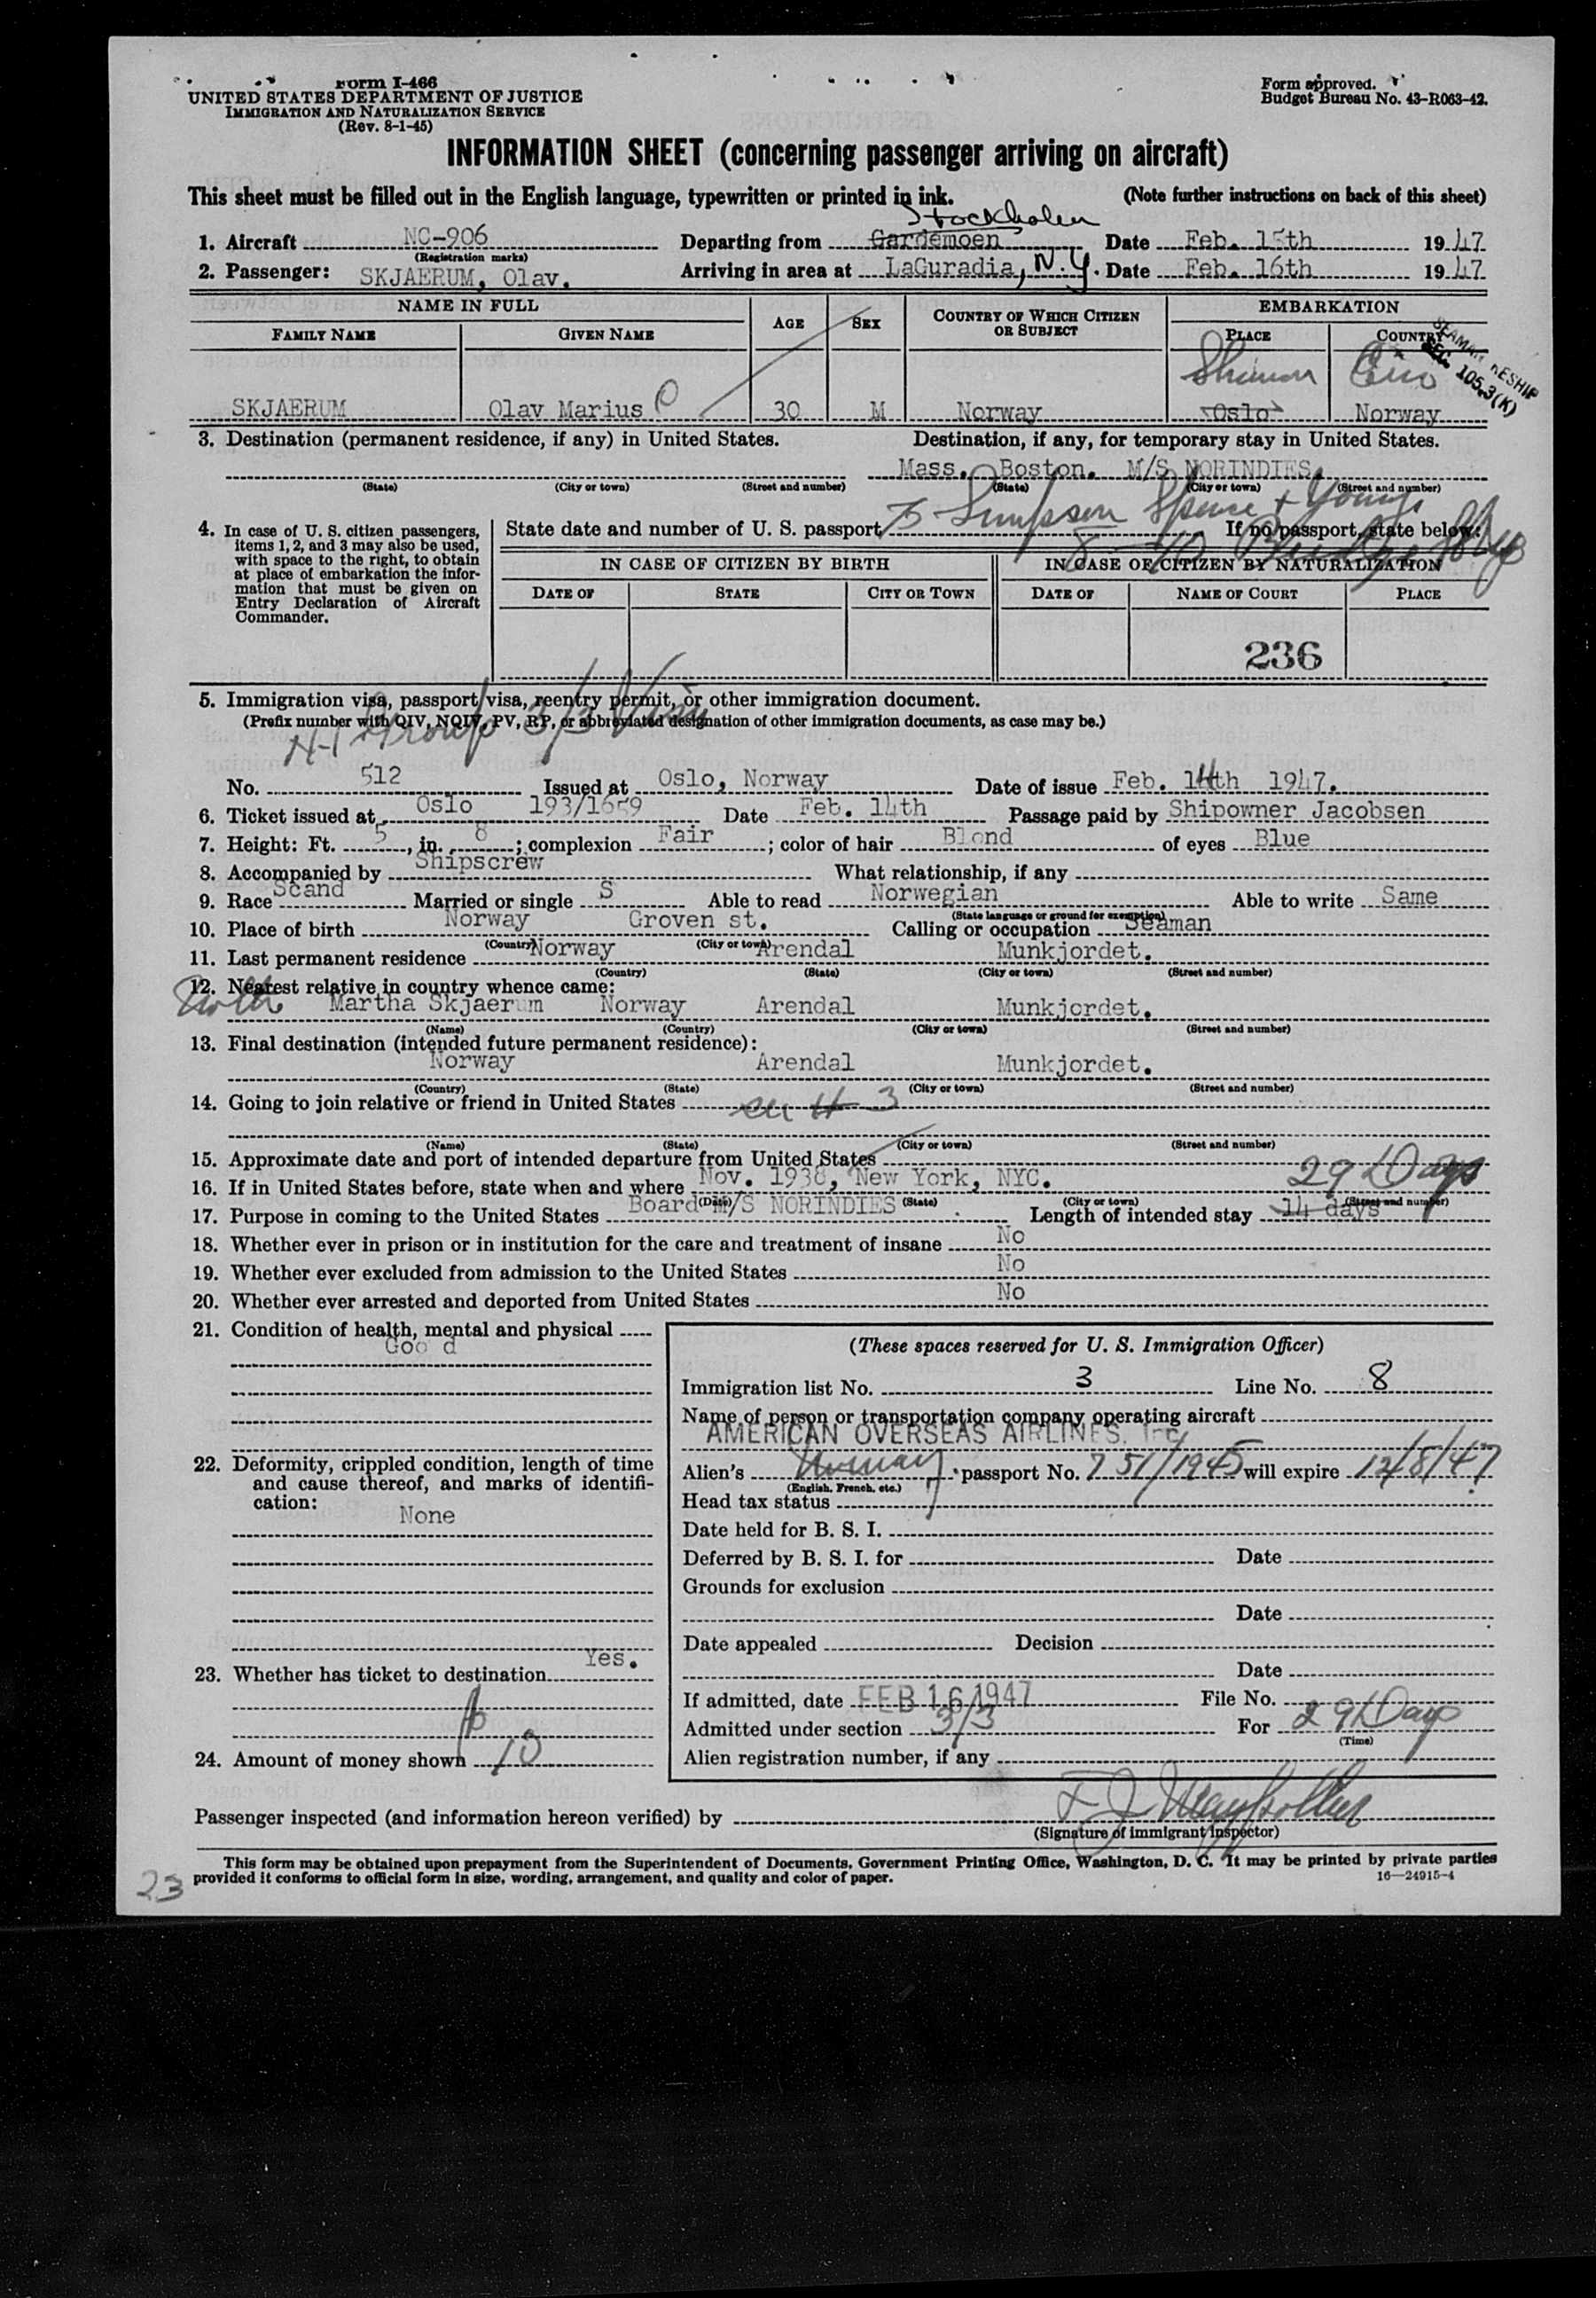 Form I-466
UNITED STATES DEPARTMENT OF JUSTICE
IMMIGRATION AND NATURALIZATION SERVICE
(Rev. 8-1-45)
Form approved.
Budget Bureau No. 43-R063-42.
INFORMATION SHEET (concerning passenger arriving on aircraft)
This sheet must be filled out in the English language, typewritten or printed in ink. (Note further instructions on back of this sheet)
Stockholm
1. Aircraft NC-906 Departing from Gardemoen Date Feb. 15th 1947
(Registration marks)
2. Passenger: SKJAERUM, Olav. Arriving in area at LaGuradia, N.Y. Date Feb. 16th 1947
NAME IN FULL AGE SEX COUNTRY OF WHICH CITIZEN OR SUBJECT EMBARKATION
FAMILY NAME GIVEN NAME PLACE COUNTRY
SEAMAN RESHIP
SEC. 105.3(K)
Shannon Eire
SKJAERUM Olav Marius 30 M Norway Oslo Norway
3. Destination (permanent residence, if any) in United States. Destination, if any, for temporary stay in United States.
Mass. Boston. M/S NORINDIES.
(State) (City or town) (Street and number) (State) (City or town) (Street and number)
Simpson Spence & Young
4. In case of U. S. citizen passengers, items 1, 2, and 3 may also be used, with space to the right, to obtain at place of embarkation the information that must be given on Entry Declaration of Aircraft Commander.
State date and number of U. S. passport If no passport, state below:
IN CASE OF CITIZEN BY BIRTH IN CASE OF CITIZEN BY NATURALIZATION
DATE OF STATE CITY OR TOWN DATE OF NAME OF COURT PLACE
236
5. Immigration visa, passport visa, reentry permit, or other immigration document.
(Prefix number with QIV, NQIV, PV, RP, or abbreviated designation of other immigration documents, as case may be.)
Group 3/3 Visa
No. 512 Issued at Oslo, Norway Date of issue Feb. 14th 1947.
6. Ticket issued at Oslo 193/1659 Date Feb. 14th Passage paid by Shipowner Jacobsen
7. Height: Ft. 5, in. 8; complexion Fair; color of hair Blond of eyes Blue
8. Accompanied by Shipscrew What relationship, if any
9. Race Scand Married or single S Able to read Norwegian Able to write Same
(State language or ground for exemption)
10. Place of birth Norway Groven st. Calling or occupation Seaman
(Country) (City or town)
11. Last permanent residence Norway Arendal Munkjordet.
(Country) (State) (City or town) (Street and number)
12. Nearest relative in country whence came:
Moth Martha Skjaerum Norway Arendal Munkjordet.
(Name) (Country) (City or town) (Street and number)
13. Final destination (intended future permanent residence):
Norway Arendal Munkjordet.
(Country) (State) (City or town) (Street and number)
14. Going to join relative or friend in United States 3
(Name) (State) (City or town) (Street and number)
15. Approximate date and port of intended departure from United States
16. If in United States before, state when and where Nov. 1938, New York, NYC. 29 Days
(Date) (State) (City or town) (Street and number)
17. Purpose in coming to the United States Board M/S NORINDIES Length of intended stay 14 days
18. Whether ever in prison or in institution for the care and treatment of insane No
19. Whether ever excluded from admission to the United States No
20. Whether ever arrested and deported from United States No
21. Condition of health, mental and physical
Good
22. Deformity, crippled condition, length of time and cause thereof, and marks of identification:
None
23. Whether has ticket to destination Yes.
24. Amount of money shown 10
(These spaces reserved for U. S. Immigration Officer)
Immigration list No. 3 Line No. 8
Name of person or transportation company operating aircraft
AMERICAN OVERSEAS AIRLINES, Inc.
Alien's Norway passport No. 751/1945 will expire 12/8/47
(English, French, etc.)
Head tax status
Date held for B. S. I.
Deferred by B. S. I. for Date
Grounds for exclusion
Date
Date appealed Decision
Date
If admitted, date FEB 16 1947 File No.
Admitted under section 3/3 For 29 Days
(Time)
Alien registration number, if any
Passenger inspected (and information hereon verified) by
(Signature of immigrant inspector)
This form may be obtained upon prepayment from the Superintendent of Documents, Government Printing Office, Washington, D. C. It may be printed by private parties
provided it conforms to official form in size, wording, arrangement, and quality and color of paper.
16—24915-4
23